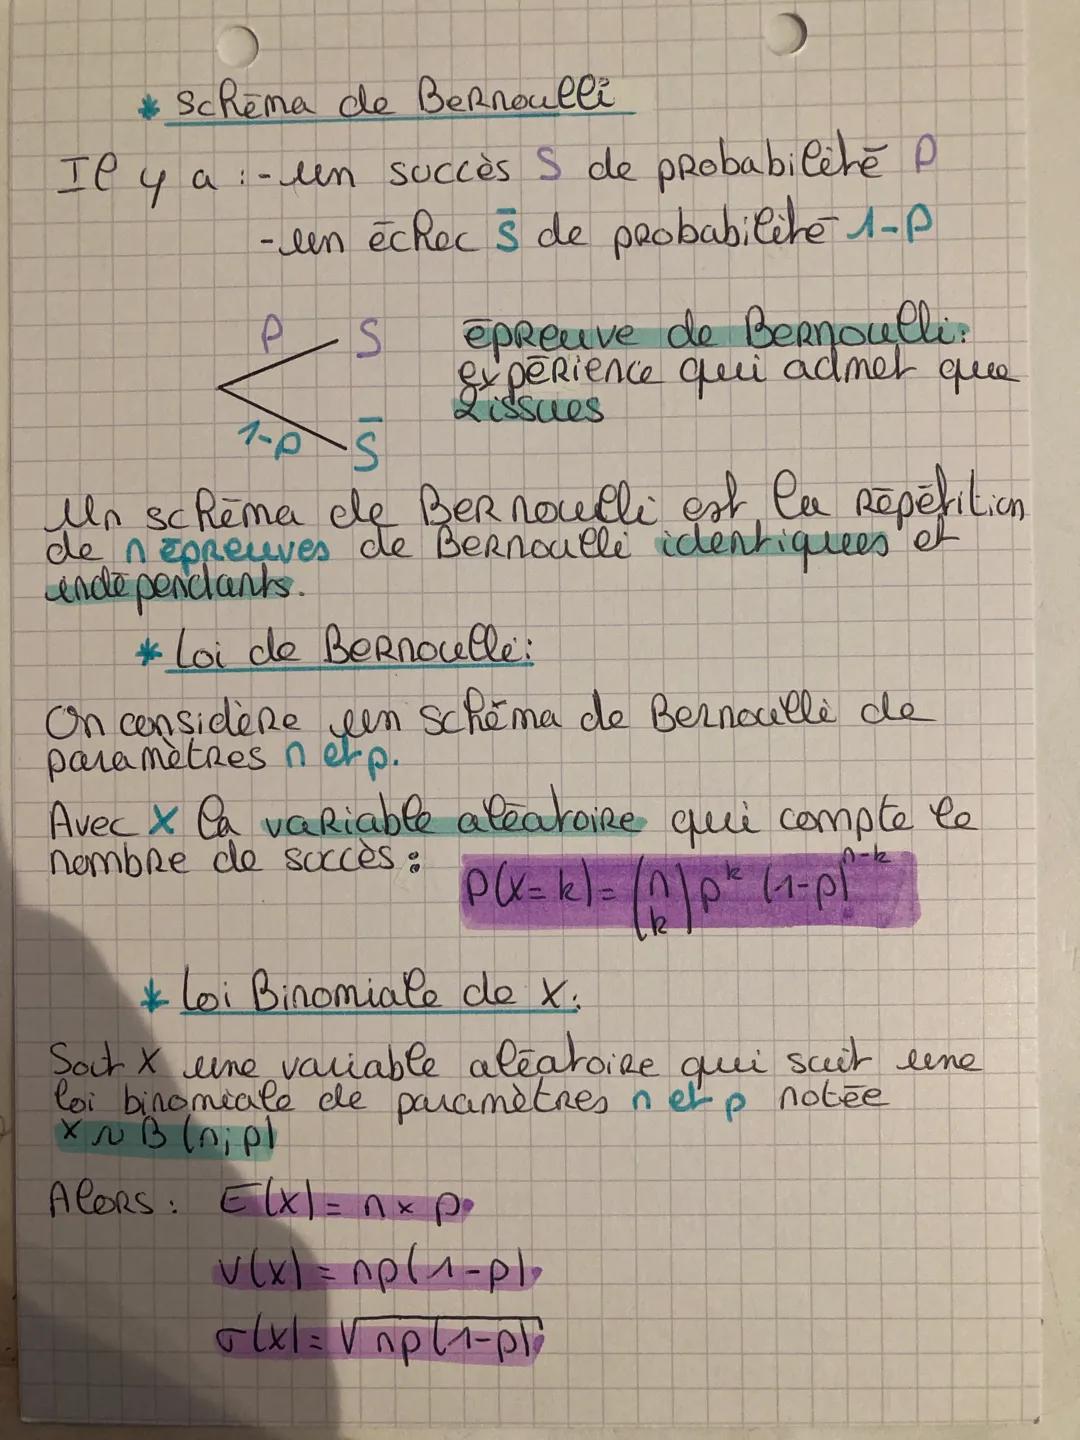 * Schéma de Bernoulli
Il y a : - un succès S de probabilité p
- un échec S̅ de probabilité 1-p
p S
épreuve de Bernoulli:
expérience qui admet que
2 issues
1-p S̅
Un schéma de Bernoulli est la répétition
de n épreuves de Bernoulli identiques et
indépendants.
* Loi de Bernoulli:
On considère un schéma de Bernoulli de
paramètres n et p.
Avec X la variable aléatoire qui compte le
nombre de succès :
P(X=k)= (n k) p^k (1-p)^n-k
* Loi Binomiale de X:
Soit X une variable aléatoire qui suit une
loi binomiale de paramètres n et p notée
X ~ B (n; p)
Alors : E(X)= n × p
V(X) = np(1-p)
σ(X)= √np(1-p)